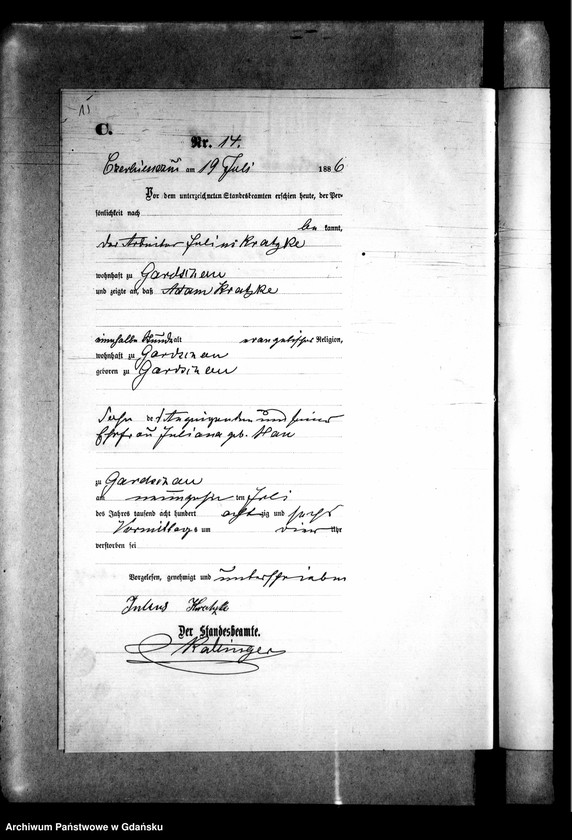 11
C.
Nr. 14.
am 19 Juli 1886
Vor dem unterzeichneten Standesbeamten erschien heute, der Per-
sönlichkeit nach
be kannt,
der Arbeiter Julius Kratzke
wohnhaft zu Gardschau
und zeigte an, daß Adam Kratzke
eine halbe Stunde alt evangelischer Religion,
wohnhaft zu Gardschau
geboren zu Gardschau
Sohn des Anzeigenden und seiner
Ehefrau Juliana geb.
zu Gardschau
am neunzehnten Juli
des Jahres tausend acht hundert achtzig und sechs
Vormittags um vier Uhr
verstorben sei
Vorgelesen, genehmigt und unterschrieben
Julius Kratzke
Der Standesbeamte.
Archiwum Państwowe w Gdańsku